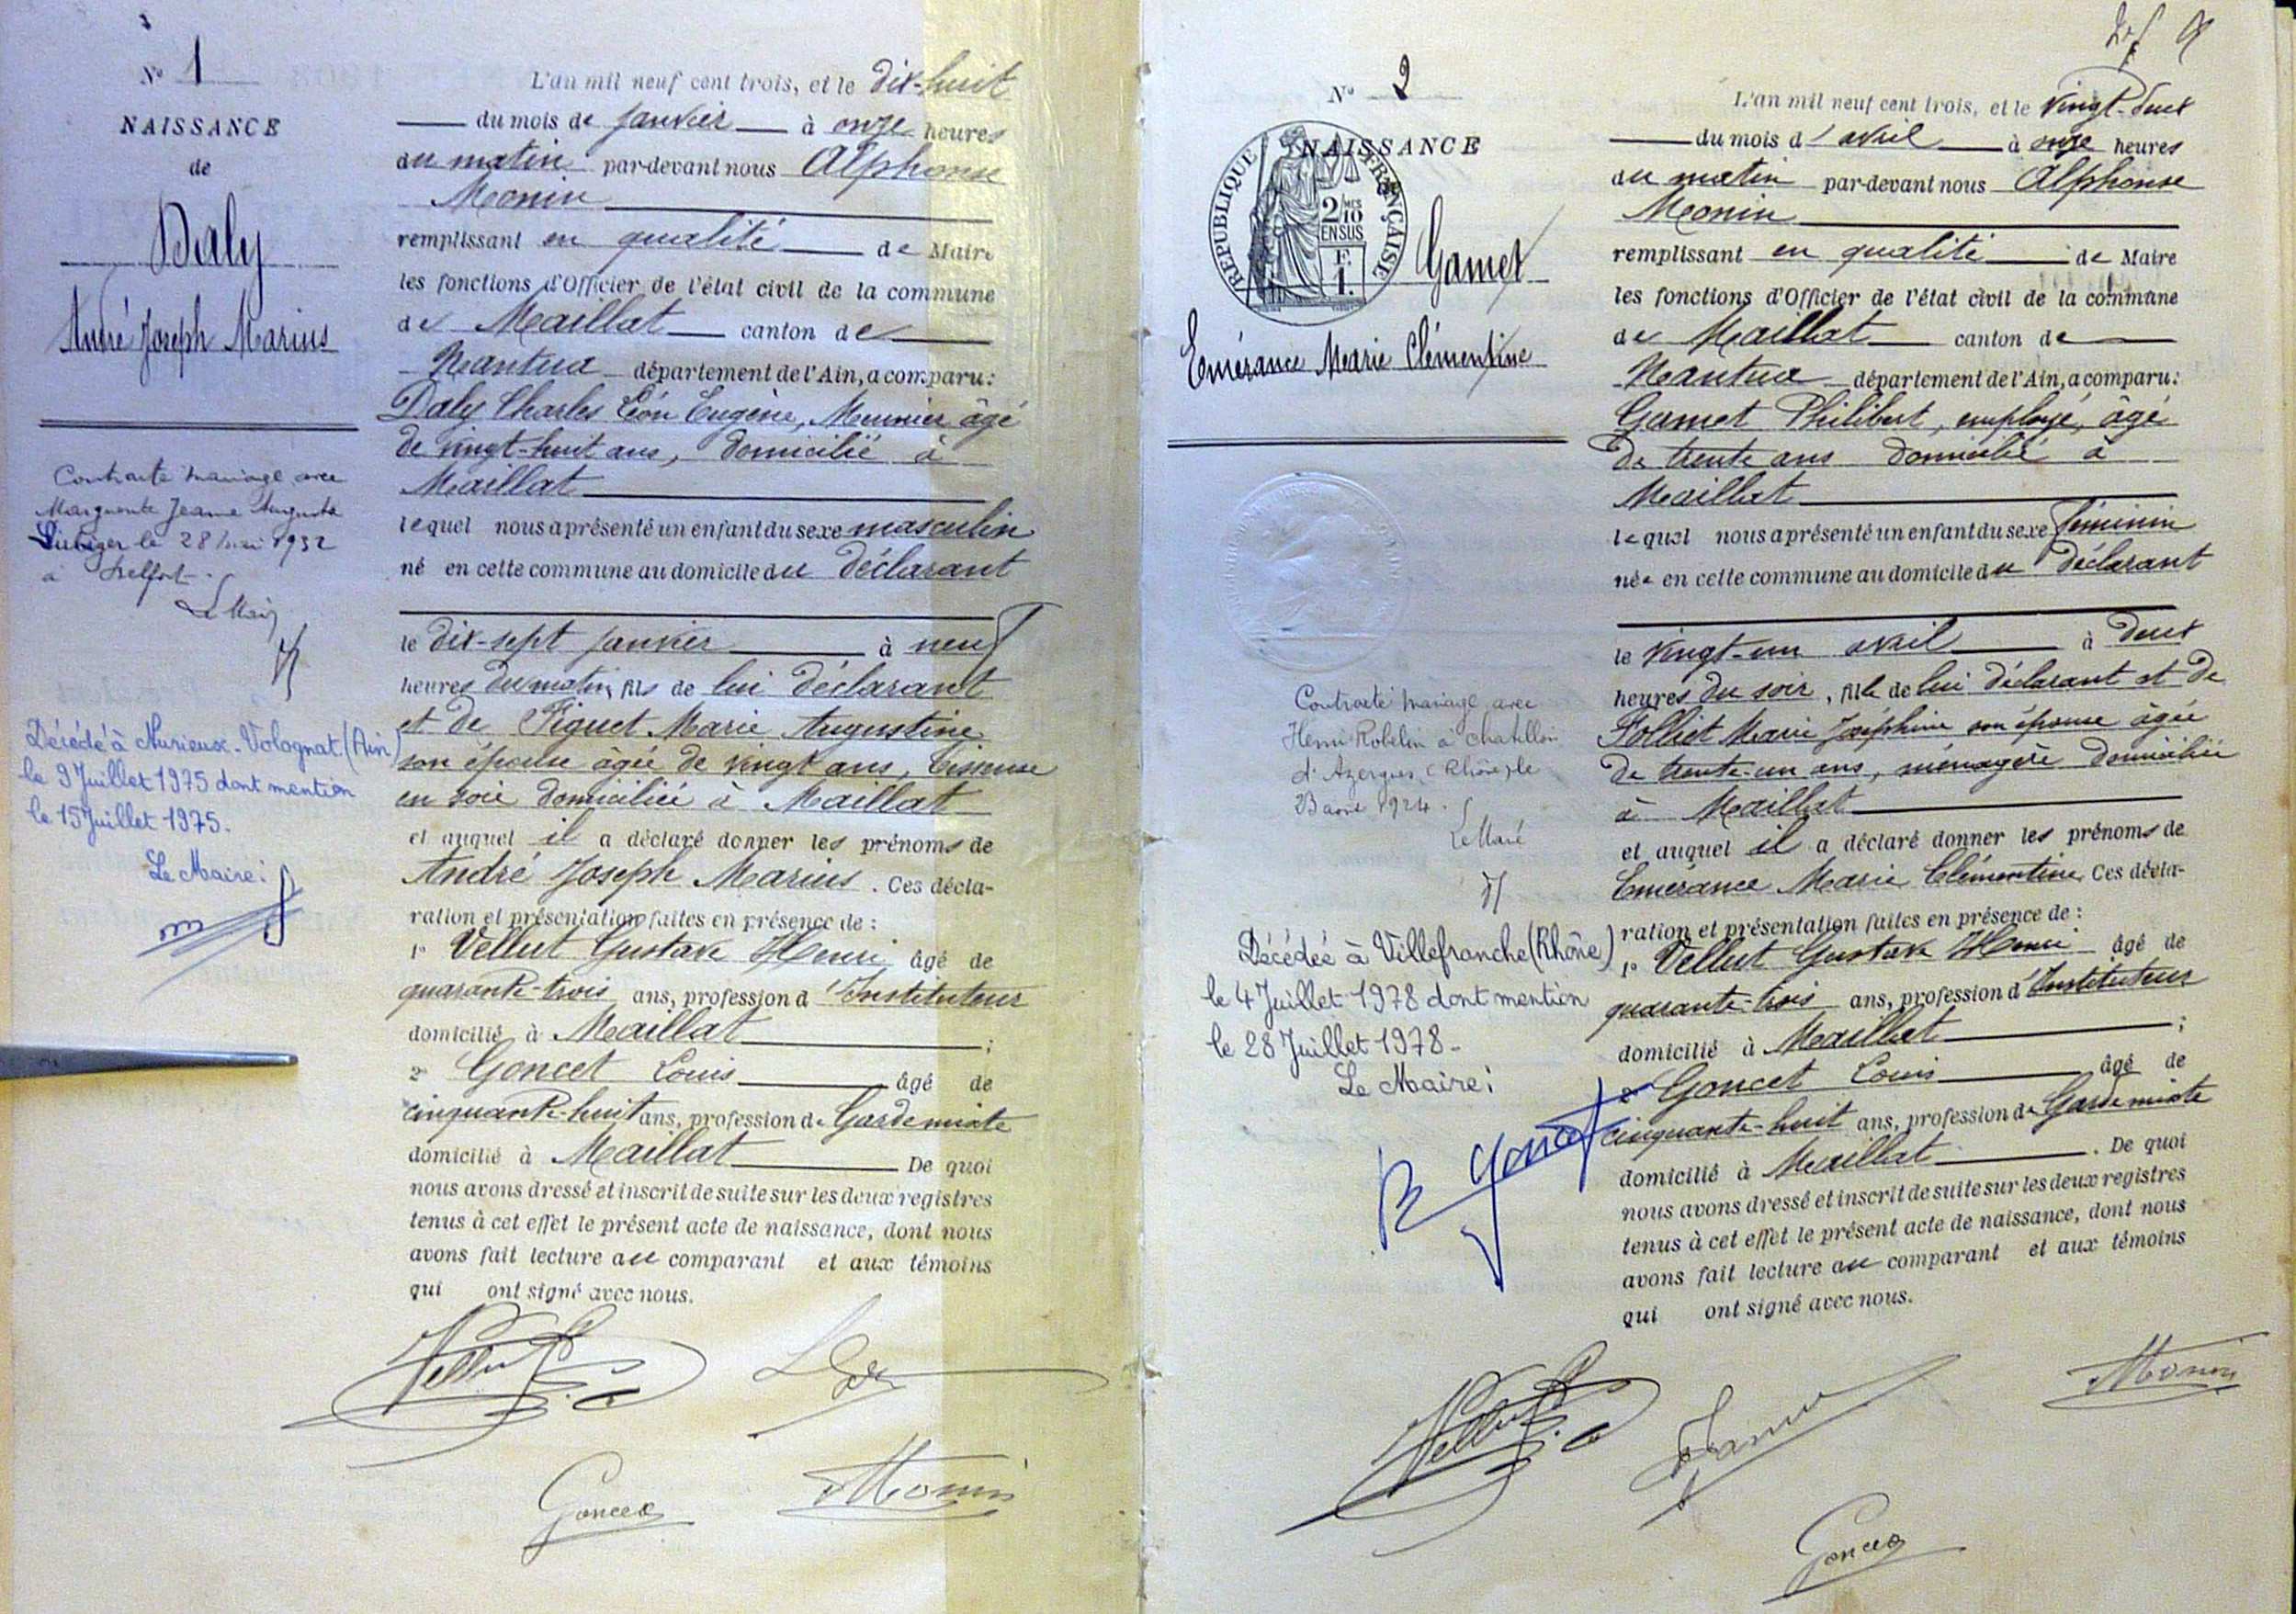 N° 1
NAISSANCE
de
Daly
André Joseph Marius
Contracté mariage avec
Marguerite Jeanne Augusta
le 28 mai 1932
à Belfort.
Le Maire
Décédé à Nurieux-Volognat (Ain)
le 9 Juillet 1975 dont mention
le 15 Juillet 1975.
Le Maire:
L'an mil neuf cent trois, et le dix-huit
du mois de janvier à onze heures
du matin par-devant nous Alphonse
Monin
remplissant en qualité de Maire
les fonctions d'Officier de l'état civil de la commune
de Maillat canton de
Nantua département de l'Ain, a comparu:
Daly Charles Léon Eugène, Meunier âgé
de vingt-huit ans, domicilié à
Maillat
lequel nous a présenté un enfant du sexe masculin
né en cette commune au domicile du déclarant
le dix-sept janvier à neuf
heures du matin, fils de lui déclarant
et de Piguet Marie Augustine
son épouse âgée de vingt ans, tisseuse
en soie domiciliée à Maillat
et auquel il a déclaré donner les prénoms de
André Joseph Marius. Ces décla-
ration et présentation faites en présence de:
1° Vellut Gustave Henri âgé de
quarante-trois ans, profession d'Instituteur
domicilié à Maillat;
2° Goncet Louis âgé de
cinquante-huit ans, profession de Garde mixte
domicilié à Maillat De quoi
nous avons dressé et inscrit de suite sur les deux registres
tenus à cet effet le présent acte de naissance, dont nous
avons fait lecture au comparant et aux témoins
qui ont signé avec nous.
Vellut
Goncet
Monin
N° 2
NAISSANCE
REPUBLIQUE FRANÇAISE
2/10 MES
EN SUS
Gamet
Emérance Marie Clémentine
Contracté mariage avec
Henri Robelin à Chatillon
d'Azergues (Rhône) le
23 août 1924.
Le Maire
Décédée à Villefranche (Rhône)
le 4 Juillet 1978 dont mention
le 28 Juillet 1978-
Le Maire:
L'an mil neuf cent trois, et le vingt-deux
du mois d'avril à onze heures
du matin par-devant nous Alphonse
Monin
remplissant en qualité de Maire
les fonctions d'Officier de l'état civil de la commune
de Maillat canton de
Nantua département de l'Ain, a comparu:
Gamet Philibert, employé, âgé
de trente ans domicilié à
Maillat
lequel nous a présenté un enfant du sexe féminin
née en cette commune au domicile du déclarant
le vingt-un avril à deux
heures du soir, fille de lui déclarant et de
Folliet Marie Joséphine son épouse âgée
de trente-un ans, ménagère domiciliée
à Maillat
et auquel il a déclaré donner les prénoms de
Emérance Marie Clémentine. Ces décla-
ration et présentation faites en présence de:
1° Vellut Gustave Henri âgé de
quarante-trois ans, profession d'Instituteur
domicilié à Maillat;
2° Goncet Louis âgé de
cinquante-huit ans, profession de Garde mixte
domicilié à Maillat. De quoi
nous avons dressé et inscrit de suite sur les deux registres
tenus à cet effet le présent acte de naissance, dont nous
avons fait lecture au comparant et aux témoins
qui ont signé avec nous.
Vellut
Gamet
Monin
Goncet